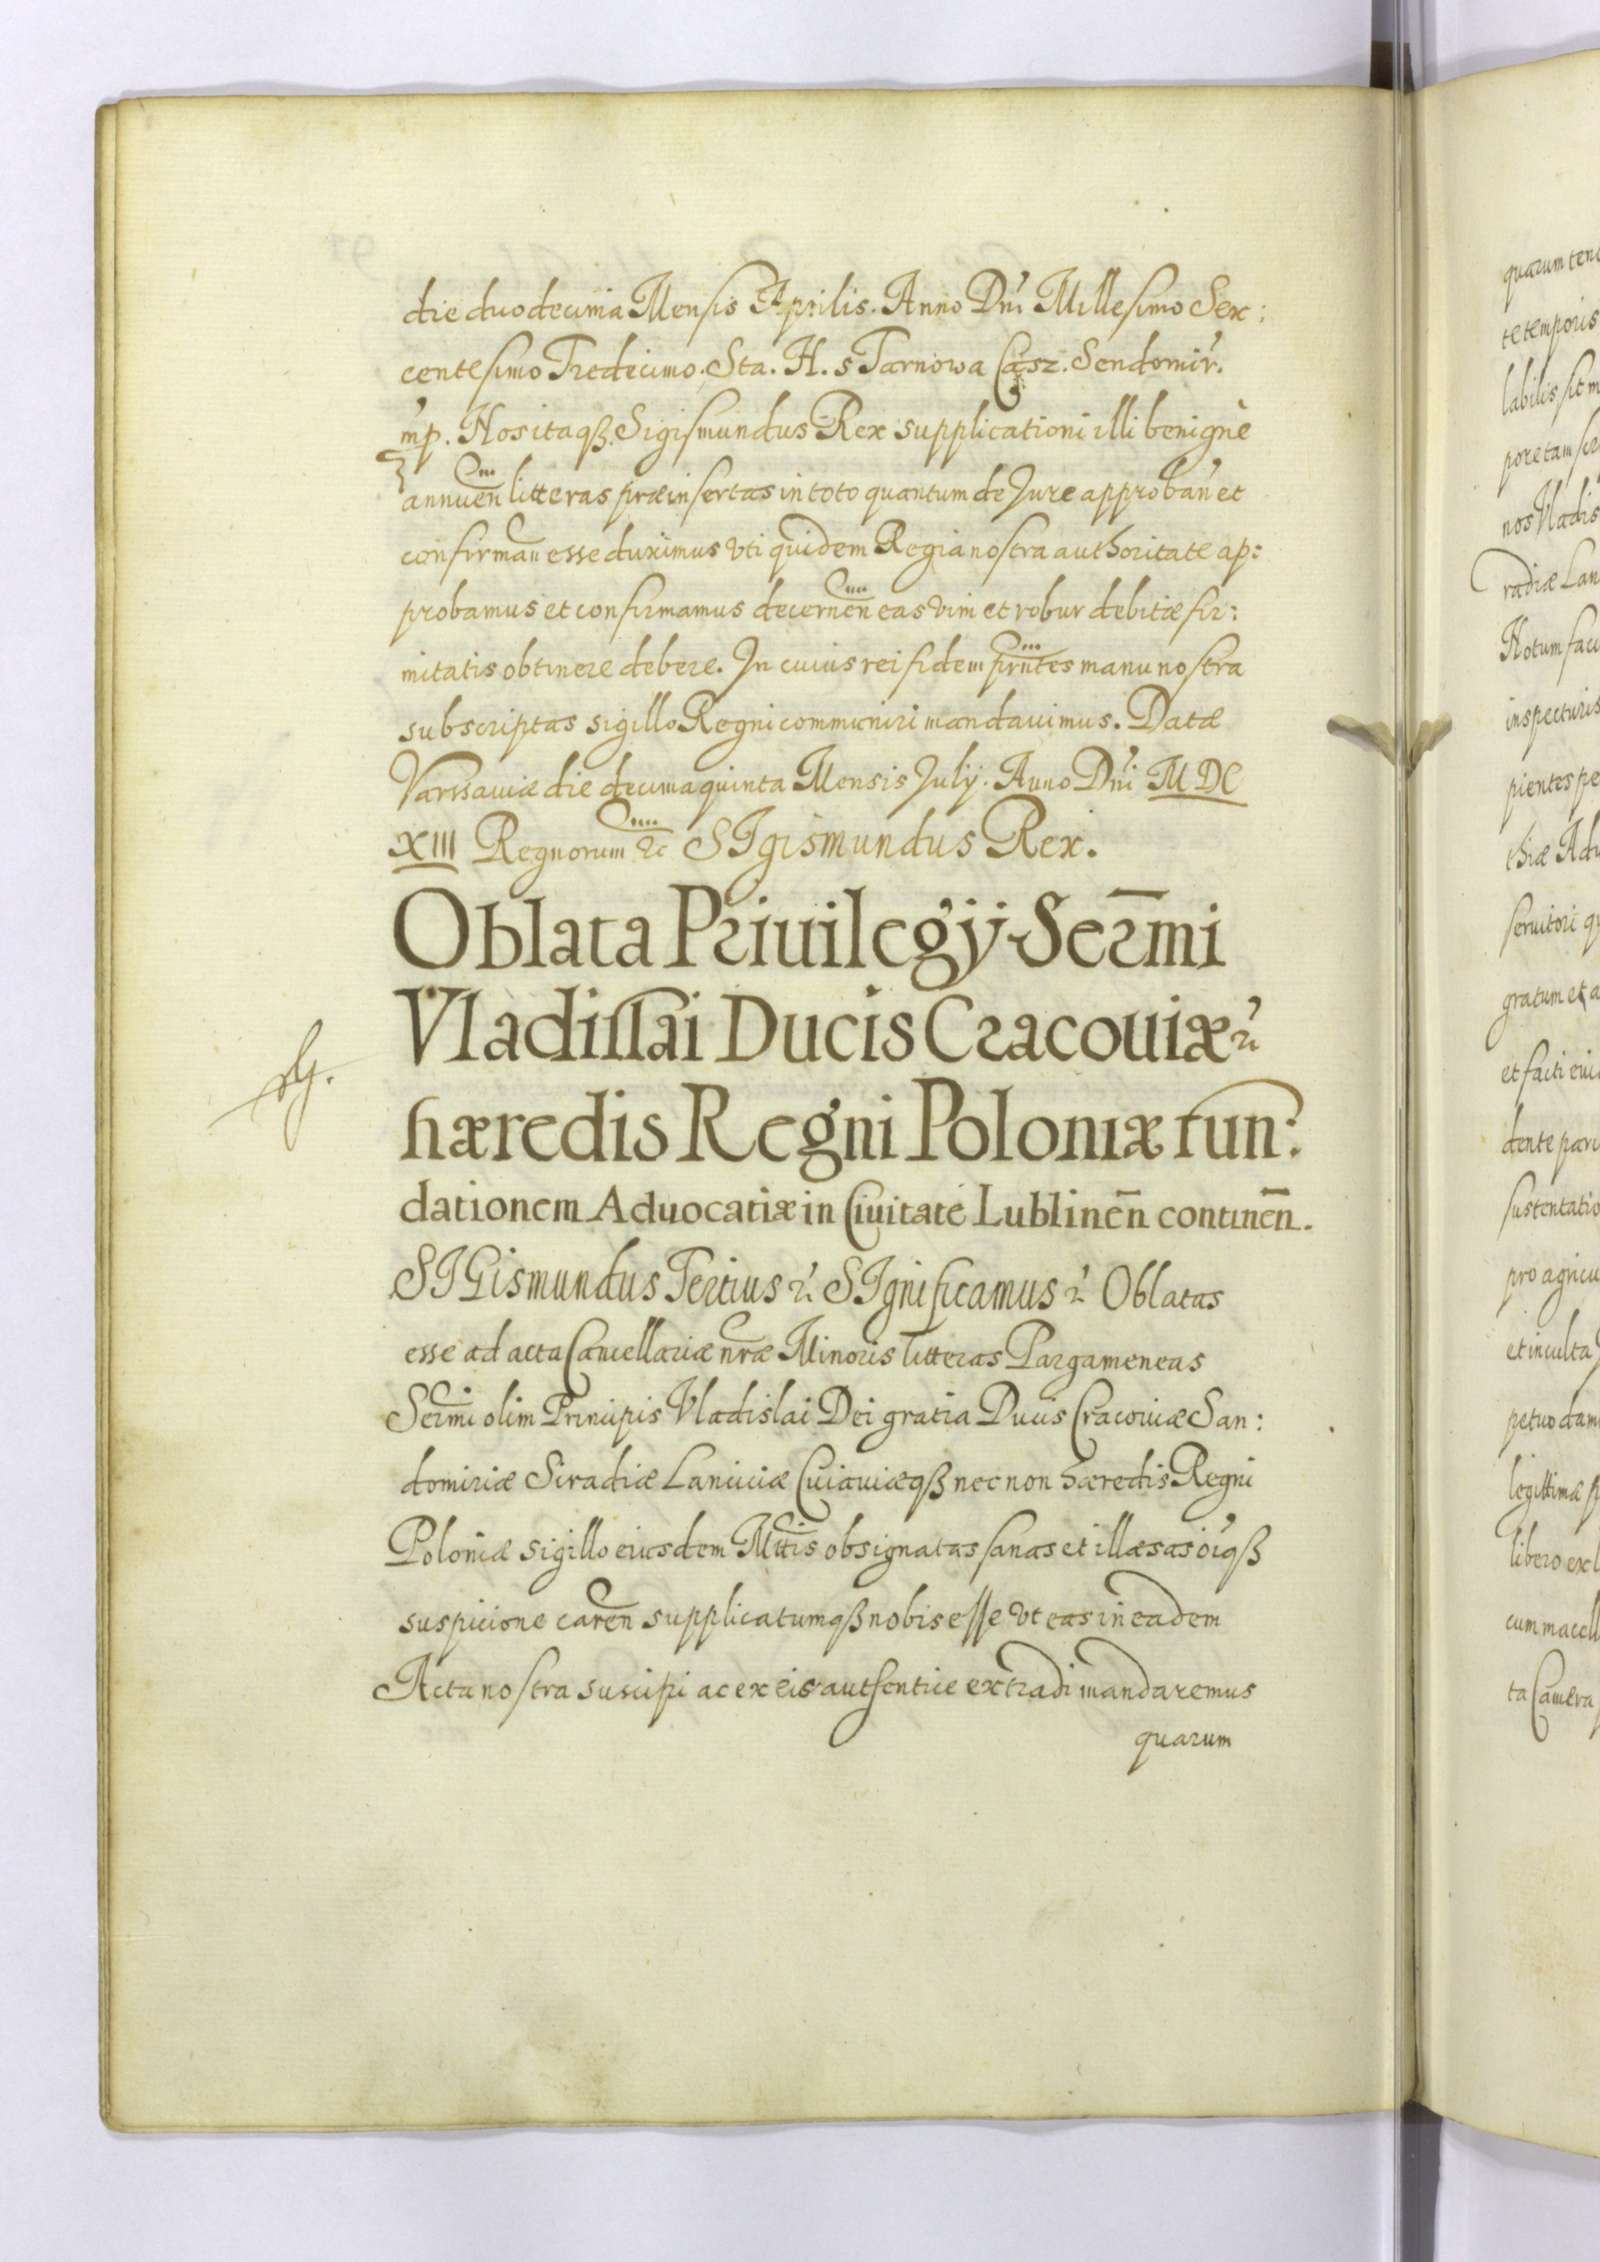 die duodecima Mensis Aprilis. Anno Dni Millesimo Sex:
centesimo Tredecimo. Sta. H. s Tarnowa Casz. Sendomir.
mp. Nos itaqß Sigismundus Rex supplicationi illi benignè
annuen litteras præinsertas in toto quantum de Jure approban et
confirman esse duximus vti quidem Regia nostra authoritate ap:
probamus et confirmamus decernen eas vim et robur debitæ fir:
mitatis obtinere debere. In cuius rei fidem prntes manu nostra
subscriptas sigillo Regni communiri mandauimus. Datæ
Varssauiæ die decima quinta Mensis July. Anno Dni MDC
XIII Regnorum &c SIgismundus Rex.
Oblata Priuilegÿ Serm̄i
Vladislai Ducis Cracouiæ &
hæredis Regni Poloniæ fun:
dationem Aduocatiæ in Ciuitate Lublinen̄ continen̄.
SIGismundus Tertius & SIgnificamus & Oblatas
esse ad acta Cancellariæ nræ Minoris litteras Pargameneas
Sermi olim Principis Vladislai Dei gratia Ducis Cracouiæ San:
domiriæ Siradiæ Lanciciæ Cuiauiæqß nec non hæredis Regni
Poloniæ sigillo eiusdem Mttis obsignatas sanas et illæsas oiqß
suspicione caren supplicatumqß nobis esse vt eas in eadem
Acta nostra suscipi ac ex eis authentice extradi mandaremus
quarum